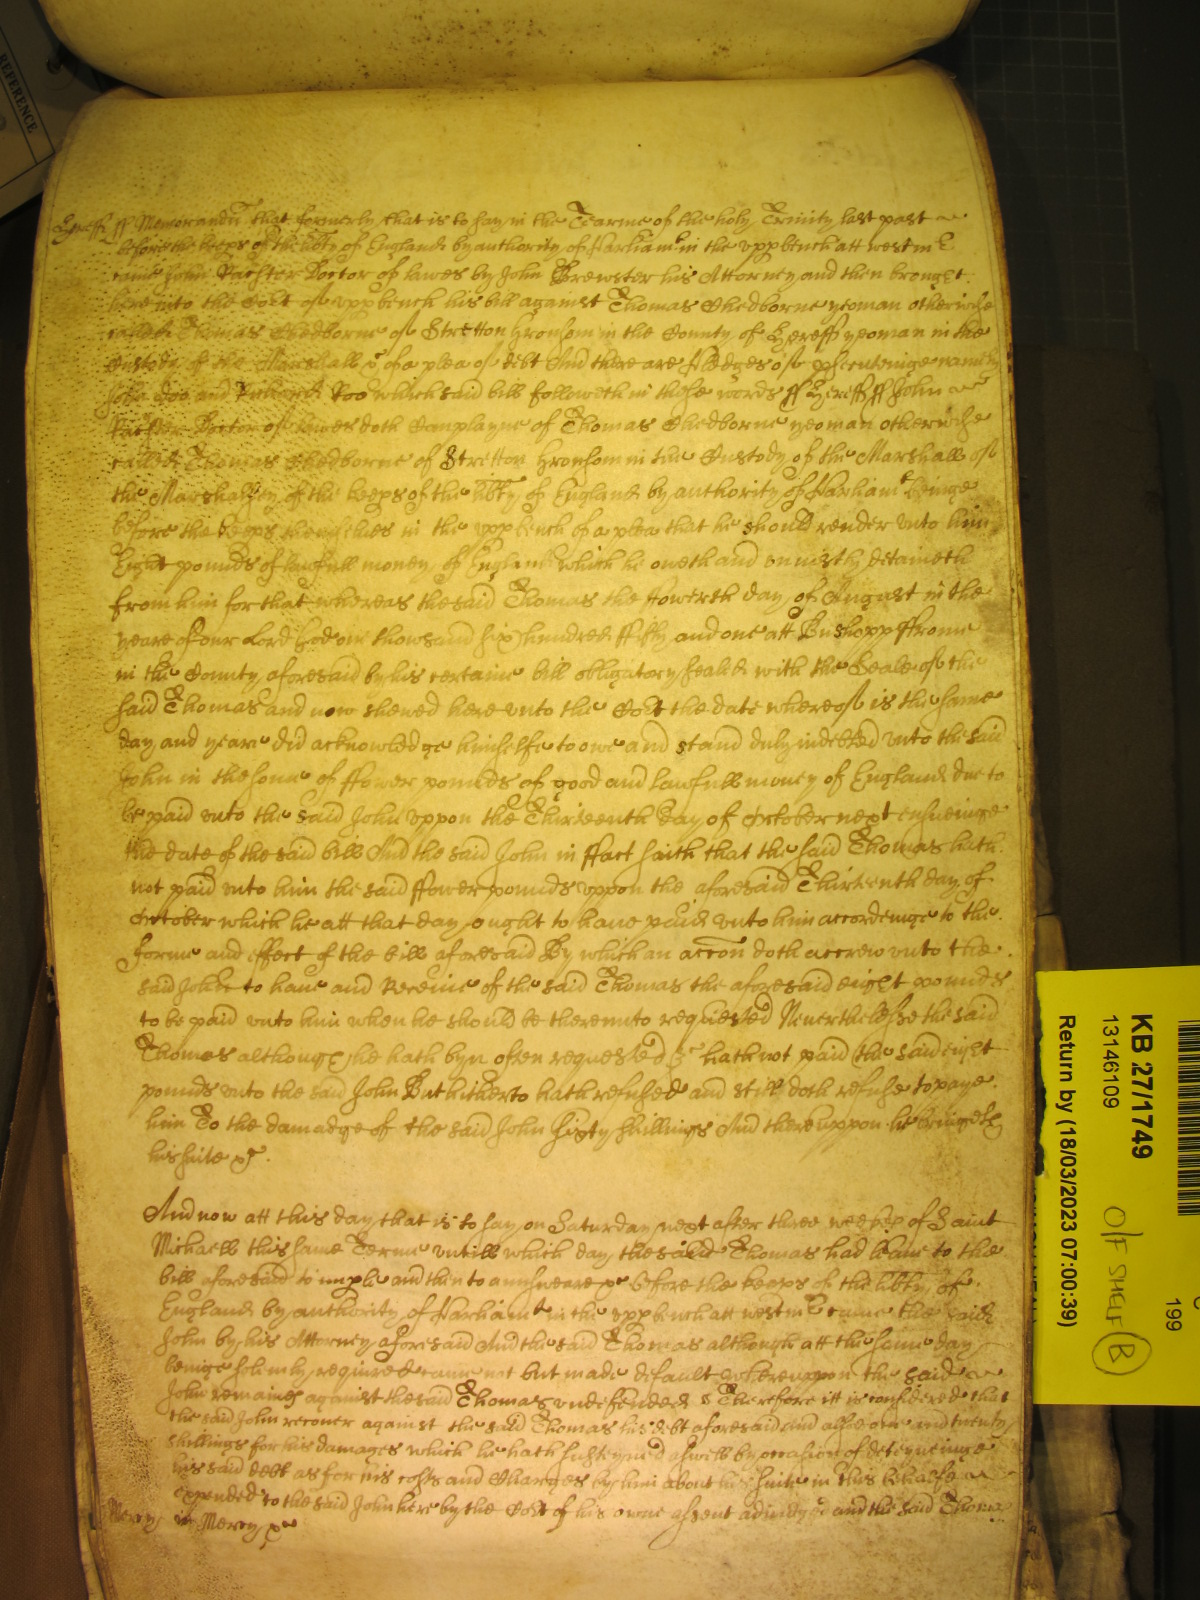 REFERENCE
Hereff ss Memorand that formerly that is to say in the Tearme of the holy Trinity last past
before the keeps of the libty of England by authority of Parliamt in the vpp bench att westmr
came John Doctor of lawes by John Brewster his Attorney and then brought
here into the Cort of vpp bench his bill against Thomas Chedborne yeoman otherwise
called Thomas Chedborne of Stretton Gronsom in the County of Hereff yeoman in the
Custody of the Marshall &c of a plea of debt And there are pledges of psecuteinge namely
John Doo and Richard Roo which said bill followeth in these words ss Hereff ss John
Doctor of lawes doth Complayne of Thomas Chedborne yeoman otherwise
called Thomas Chedborne of Stretton Gronsom in the Custody of the Marshall of
the Marshalsey of the keeps of the libty of England by authority of Parliamt beinge
before the keeps themselves in the vpp bench of a plea that he should render vnto him
Eight pounds of lawfull money of England which he oweth and vniustly detaineth
from him for that whereas the said Thomas the fowerth day of August in the
yeare of our Lord God one thowsand six hundred fifty and one att Bushopp ffrome
in the County aforesaid by his certaine bill obligatory sealed with the Seale of the
said Thomas and now shewed here vnto the Cort the date whereof is the same
day and yeare did acknowledge himselfe to owe and stand duly indebted vnto the said
John in the some of ffower pounds of good and lawfull money of England due to
be paid vnto the said John vppon the Thirteenth day of October next ensueinge
the date of the said bill And the said John in ffact saith that the said Thomas hath
not paid vnto him the said ffower pounds vppon the aforesaid Thirteenth day of
October which he att that day ought to haue paid vnto him accordeinge to the
forme and effect of the bill aforesaid By which an accon doth accrew vnto the
said John to haue and Receiue of the said Thomas the aforesaid eight pounds
to be paid vnto him when he should be therevnto requested Neuerthelesse the said
Thomas although he hath byn often requested &c hath not paid the said eight
pounds vnto the said John But hitherto hath refused and still doth refuse to paye
him To the damadge of the said John sixty shillings And therevppon he bringeth
his suite &c.
And now att this day that is to say on Saturday next after three weekes of Saint
Michaell this same Terme vntill which day the said Thomas had leaue to the
bill aforesaid to imple and then to answeare &c before the keeps of the libty of
England by authority of Parliamt in the vpp bench att westmr came the said
John by his Attorney aforesaid And the said Thomas although att the same day
beinge solemly required came not but made default wherevppon the said
John remaines against the said Thomas vndefended Therefore itt is considered that
the said John recouer against the said Thomas his debt aforesaid and alsoe one and twenty
shillings for his damages which he hath susteyned aswell by occasion of deteyneinge
his said debt as for his costs and Charges by him about his suite in this behalfe
expended to the said John here by the Cort of his owne assent adiudged and the said Thomas
Mercy in Mercy &c
KB 27/1749
13146109
Return by (18/03/2023 07:00:39)
199
O/F SHELF B